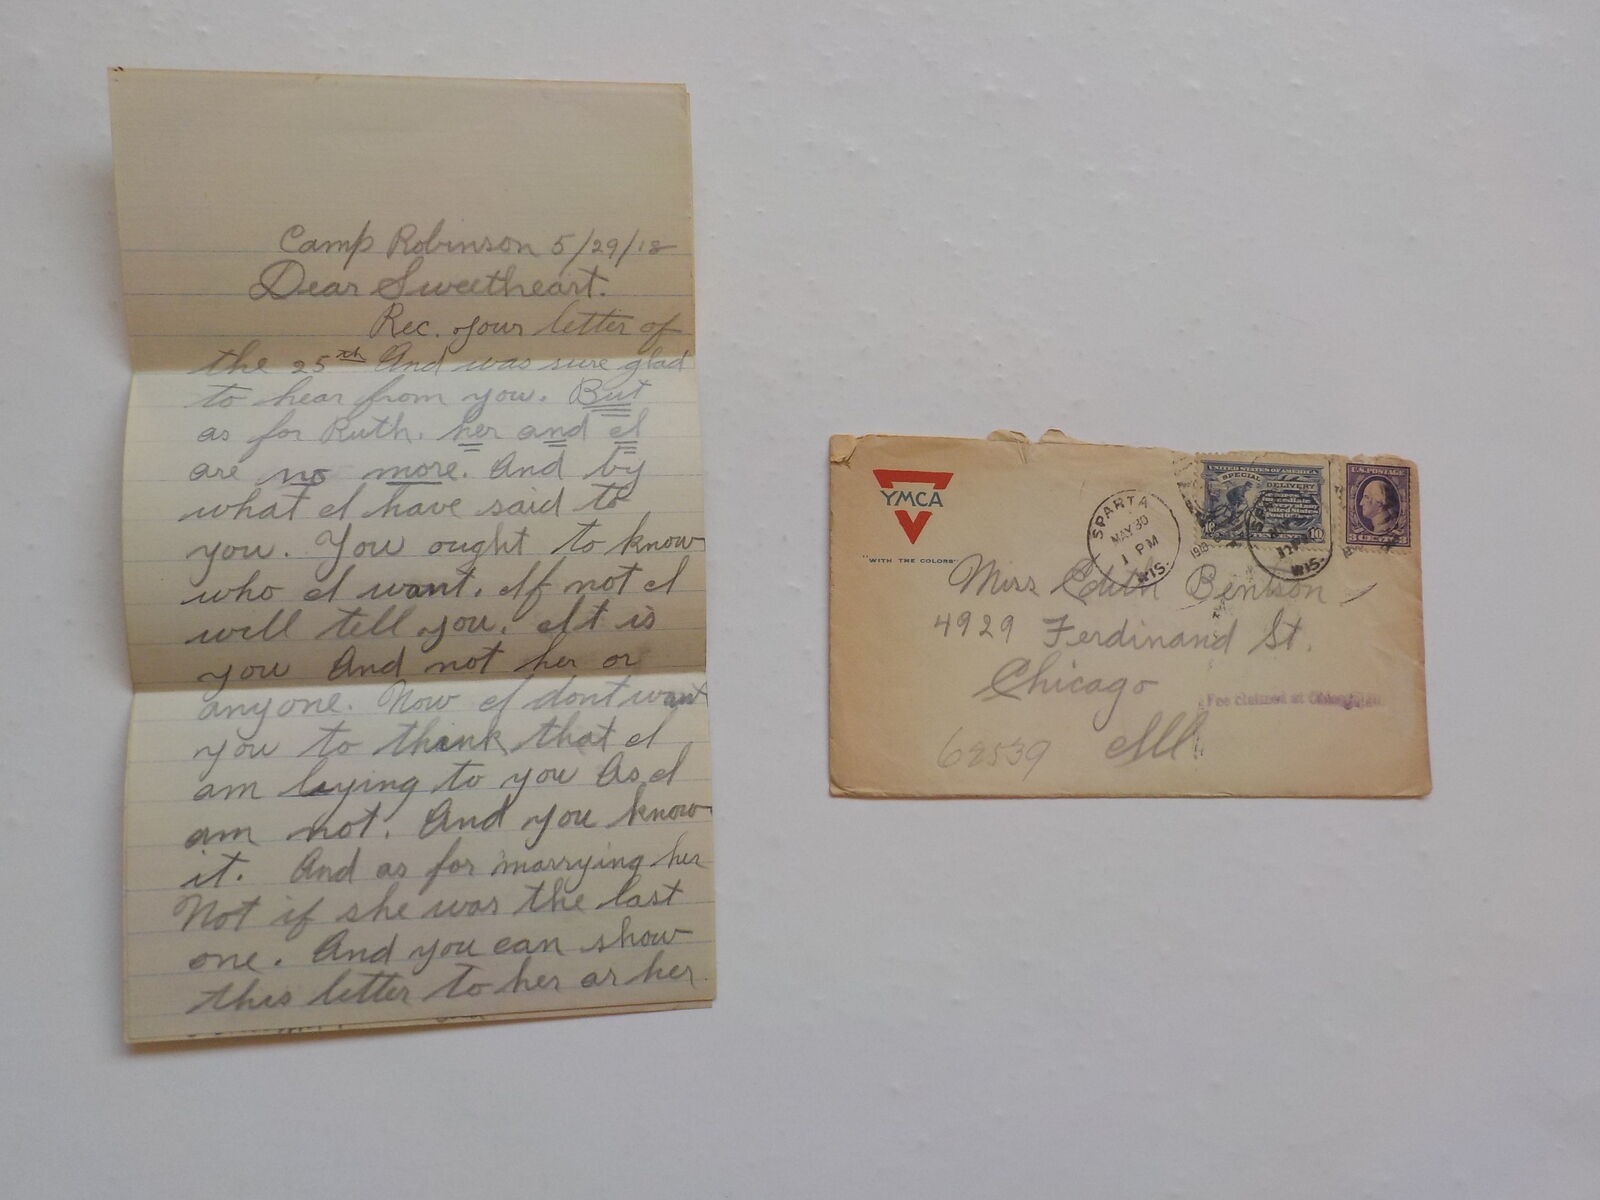 Camp Robinson 5/29/18
Dear Sweetheart.
Rec. your letter of
the 25th And was sure glad
to hear from you. But
as for Ruth. her and I
are no more. And by
what I have said to
you. You ought to know
who I want. If not I
will tell you. It is
you And not her or
anyone. Now I dont want
you to think that I
am lying to you As I
am not. And you know
it. And as for marrying her
Not if she was the last
one. And you can show
this letter to her or her
YMCA
"WITH THE COLORS"
SPARTA
MAY 30
1 PM
1918
WIS.
UNITED STATES OF AMERICA
SPECIAL DELIVERY
10
U.S. POSTAGE
3 CENTS 3
WIS.
Miss Edith Bentson
4929 Ferdinand St.
Chicago
Fee claimed at
68539 Ill.